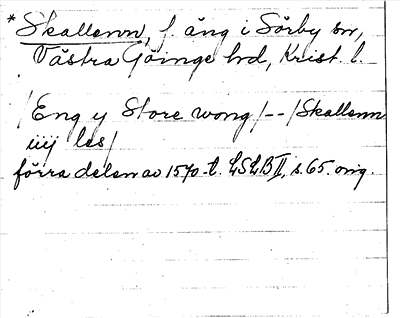 *Skallenn, f. äng i Sörby sn,
Västra Göinge hd, Krist. l.
/Eng y Store wong/--/Skallenn
iiij les/
förra delen av 1570-t. LSLB II, s. 65. orig.